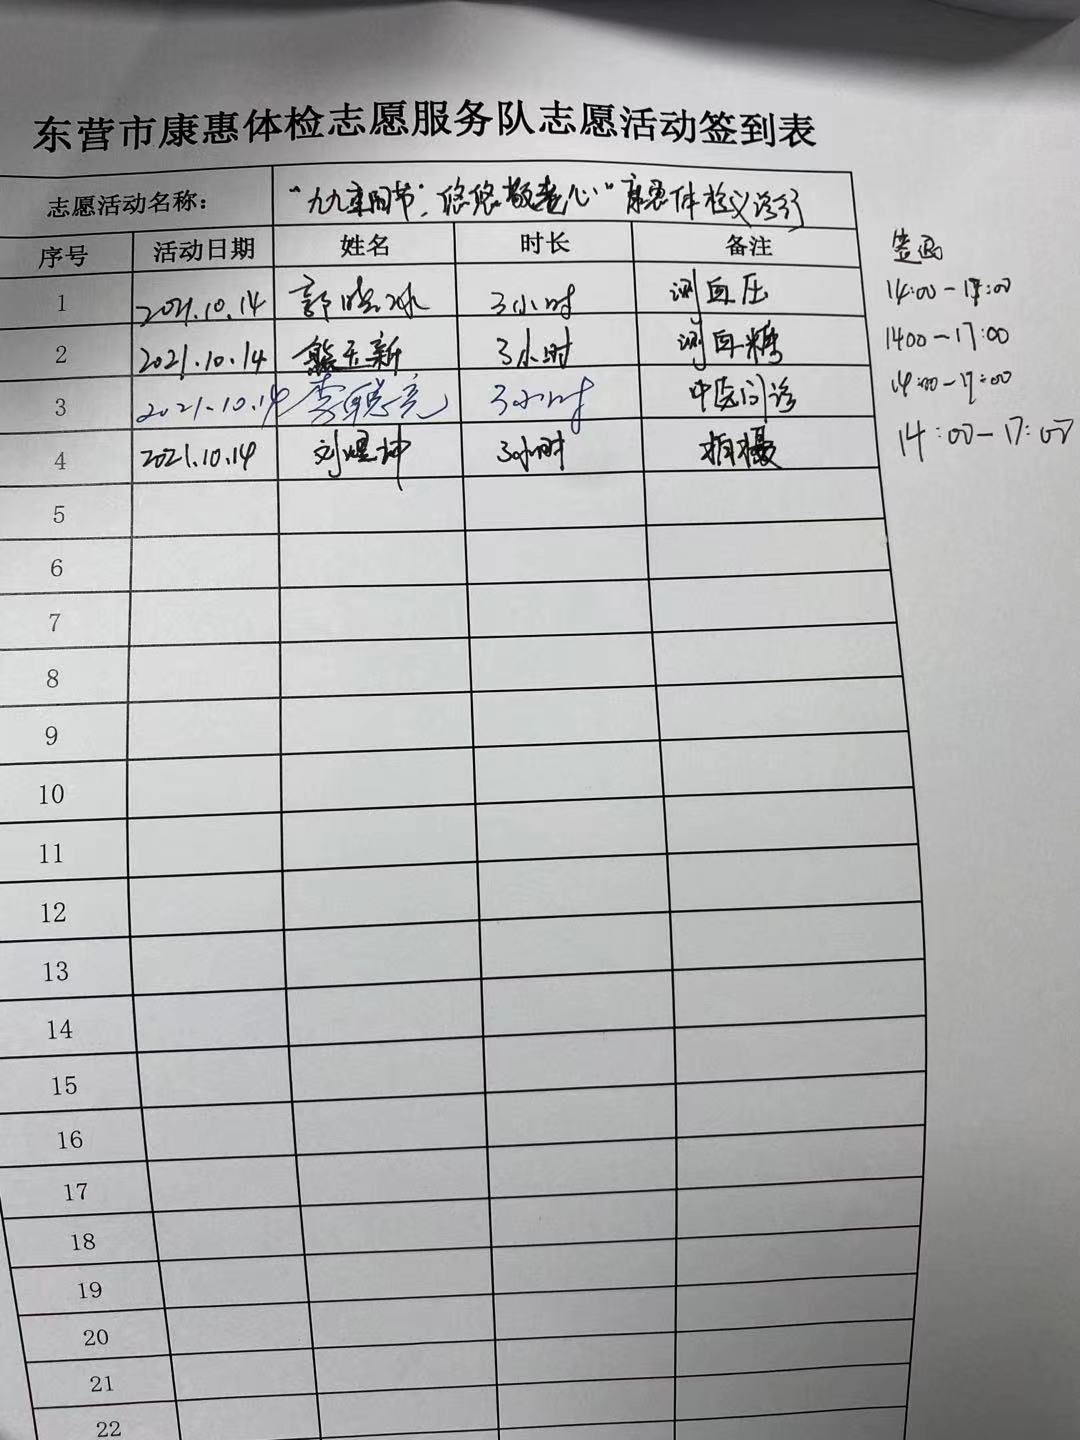 东营市康惠体检志愿服务队志愿活动签到表
志愿活动名称： “九九重阳节，悠悠敬老心”康惠体检义诊行
序号 活动日期 姓名 时长 备注 签退
1 2021.10.14 郭晓冰 3小时 测血压 14:00-17:00
2 2021.10.14 熊玉新 3小时 测血糖 1400-17:00
3 2021.10.14 李聪亮 3小时 中医问诊 14:00-17:00
4 2021.10.14 刘煜坤 3小时 拍摄 14:00-17:00
5
6
7
8
9
10
11
12
13
14
15
16
17
18
19
20
21
22